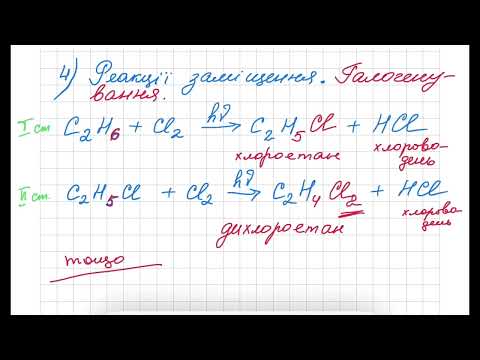 4) Реакції заміщення. Галогену-
вання.
I ст C₂H₆ + Cl₂ hν→ C₂H₅Cl + HCl
хлороетан хлорово-
день
II ст. C₂H₅Cl + Cl₂ hν→ C₂H₄Cl₂ + HCl
дихлороетан хлорово-
день
тощо